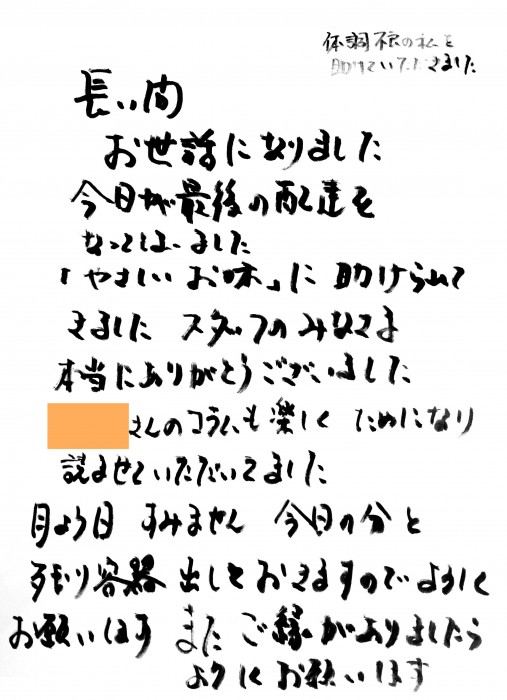 体調不良の私を
助けていただきました
長い間
お世話になりました
今日が最後の配達を
なってしまいました
「やさしいお味」に 助けられて
きました スタッフのみなさま
本当にありがとうございました
さんのコラムも楽しく ためになり
読ませていただいてました
月よう日 すみません 今日の分と
残り容器 出しておきますのでよろしく
お願いします また ご縁がありましたら
よろしくお願いします